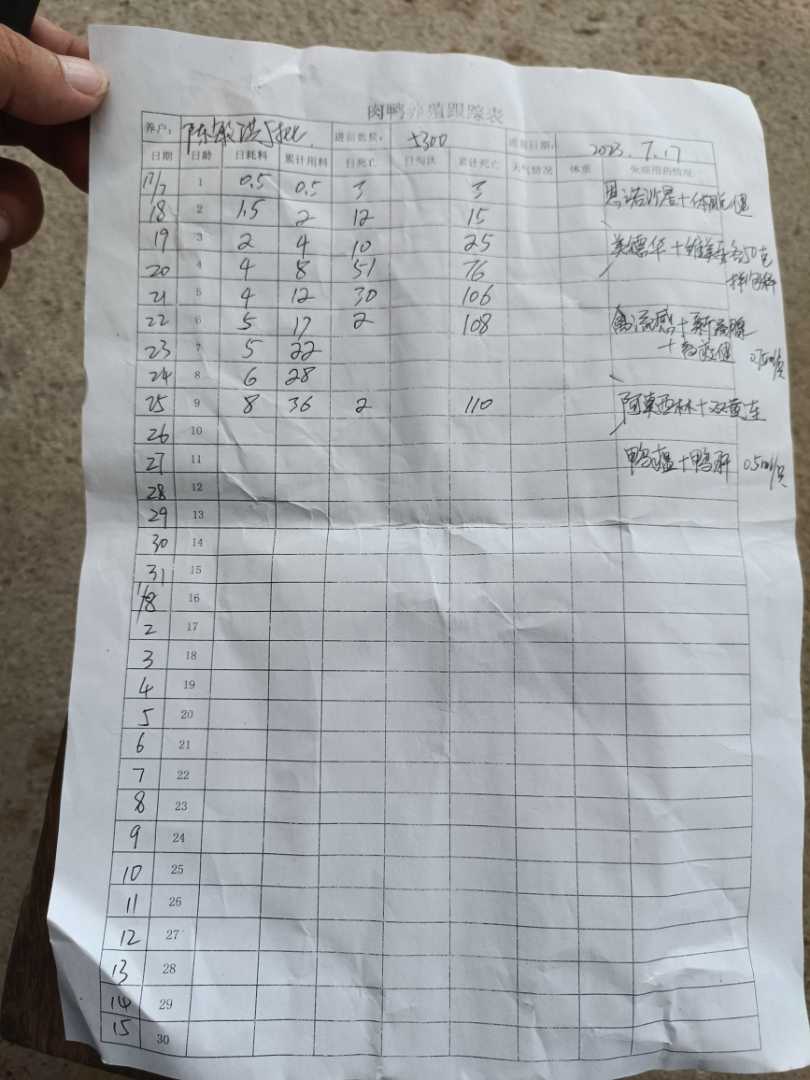 肉鸭养殖跟踪表
养户： 陈 洪5批 进苗数量： 5300 进苗日期： 2023.7.17
日期 日龄 日耗料 累计用料 日死亡 日淘汰 累计死亡 天气情况 体重 免疫用药情况
17/7 1 0.5 0.5 3 3 恩诺沙星+体能健
18 2 1.5 2 12 15
19 3 2 4 10 25 美德华+ 各50克
20 4 4 8 51 76 拌 料
21 5 4 12 30 106
22 6 5 17 2 108 禽流感+新
23 7 5 22 + 健 0.5ml/只
24 8 6 28
25 9 8 36 2 110 阿莫西林+双黄连
26 10
27 11 鸭瘟+鸭肝 0.5ml/只
28 12
29 13
30 14
31 15
1/8 16
2 17
3 18
4 19
5 20
6 21
7 22
8 23
9 24
10 25
11 26
12 27
13 28
14 29
15 30